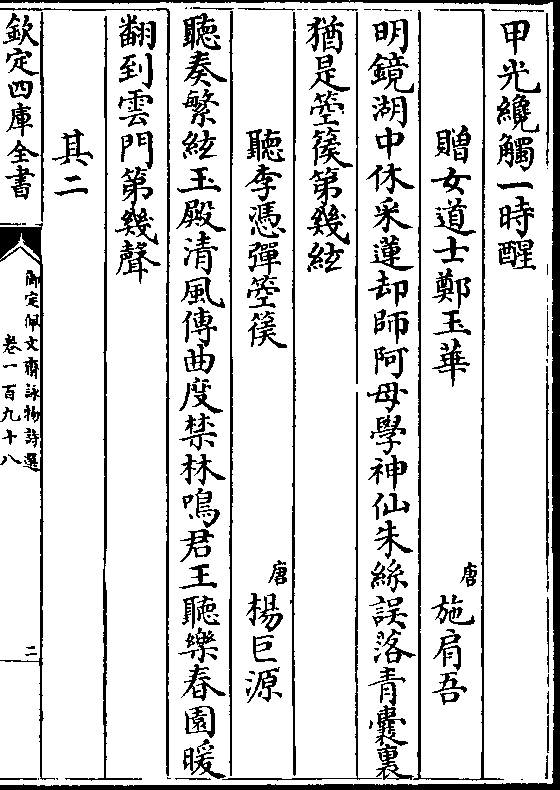 甲光纔觸一時醒
贈女道士鄭玉華 唐 施肩吾
明鏡湖中休采蓮却師阿母學神仙朱絲誤落青囊裏
猶是箜篌第幾絃
聽李憑彈箜篌 唐 楊巨源
聽奏繁絃玉殿清風傳曲度禁林鳴君王聽樂春園暖
翻到雲門第幾聲
其二
欽定四庫全書
御定佩文齋詠物詩選
卷一百九十八
二